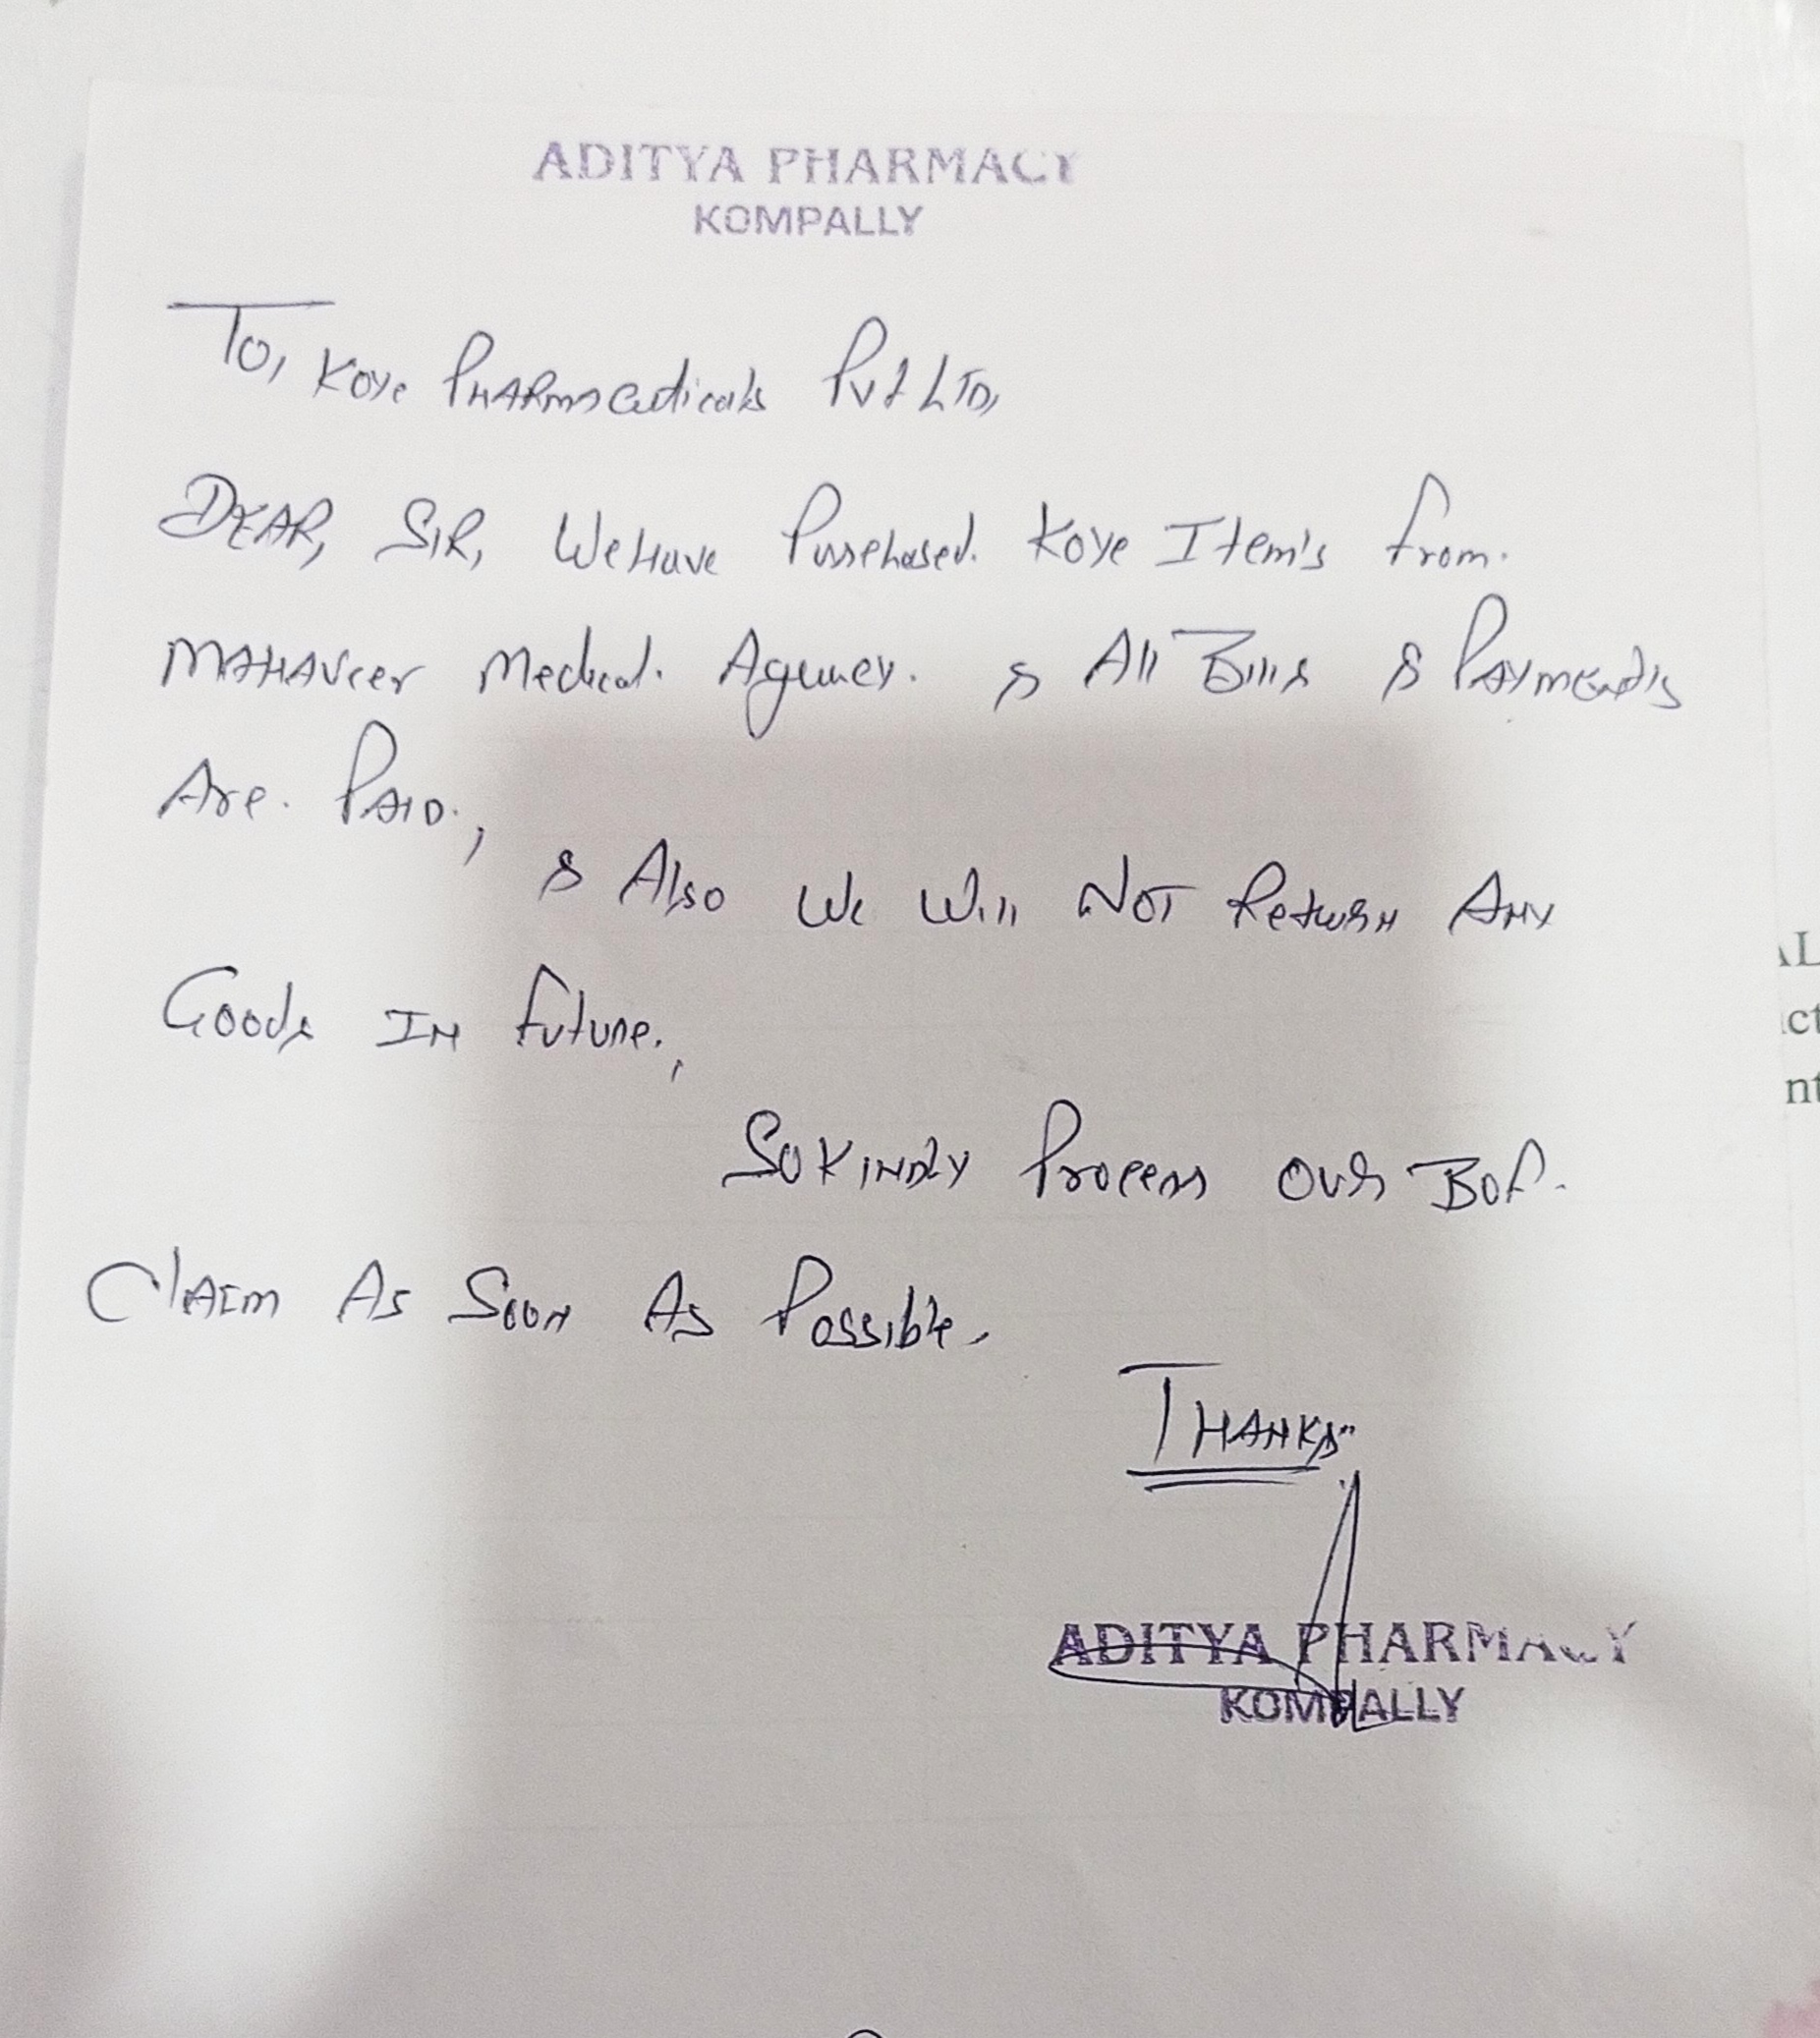 ADITYA PHARMACY
KOMPALLY
To, Koye PHARMaceuticals Pvt LTD,
DEAR, SIR, We Have Purchased. Koye Item's from.
MAHAVeer Medical. Agency. & All Bills & PAYments
Are. PAID.,
& Also We Will NOT Return Any
Goods IN future.,
So KINDLY Process our BoP.
ClAIm As Soon As Possible.
THANKS
ADITYA PHARMACY
KOMPALLY
AL
ct
nt